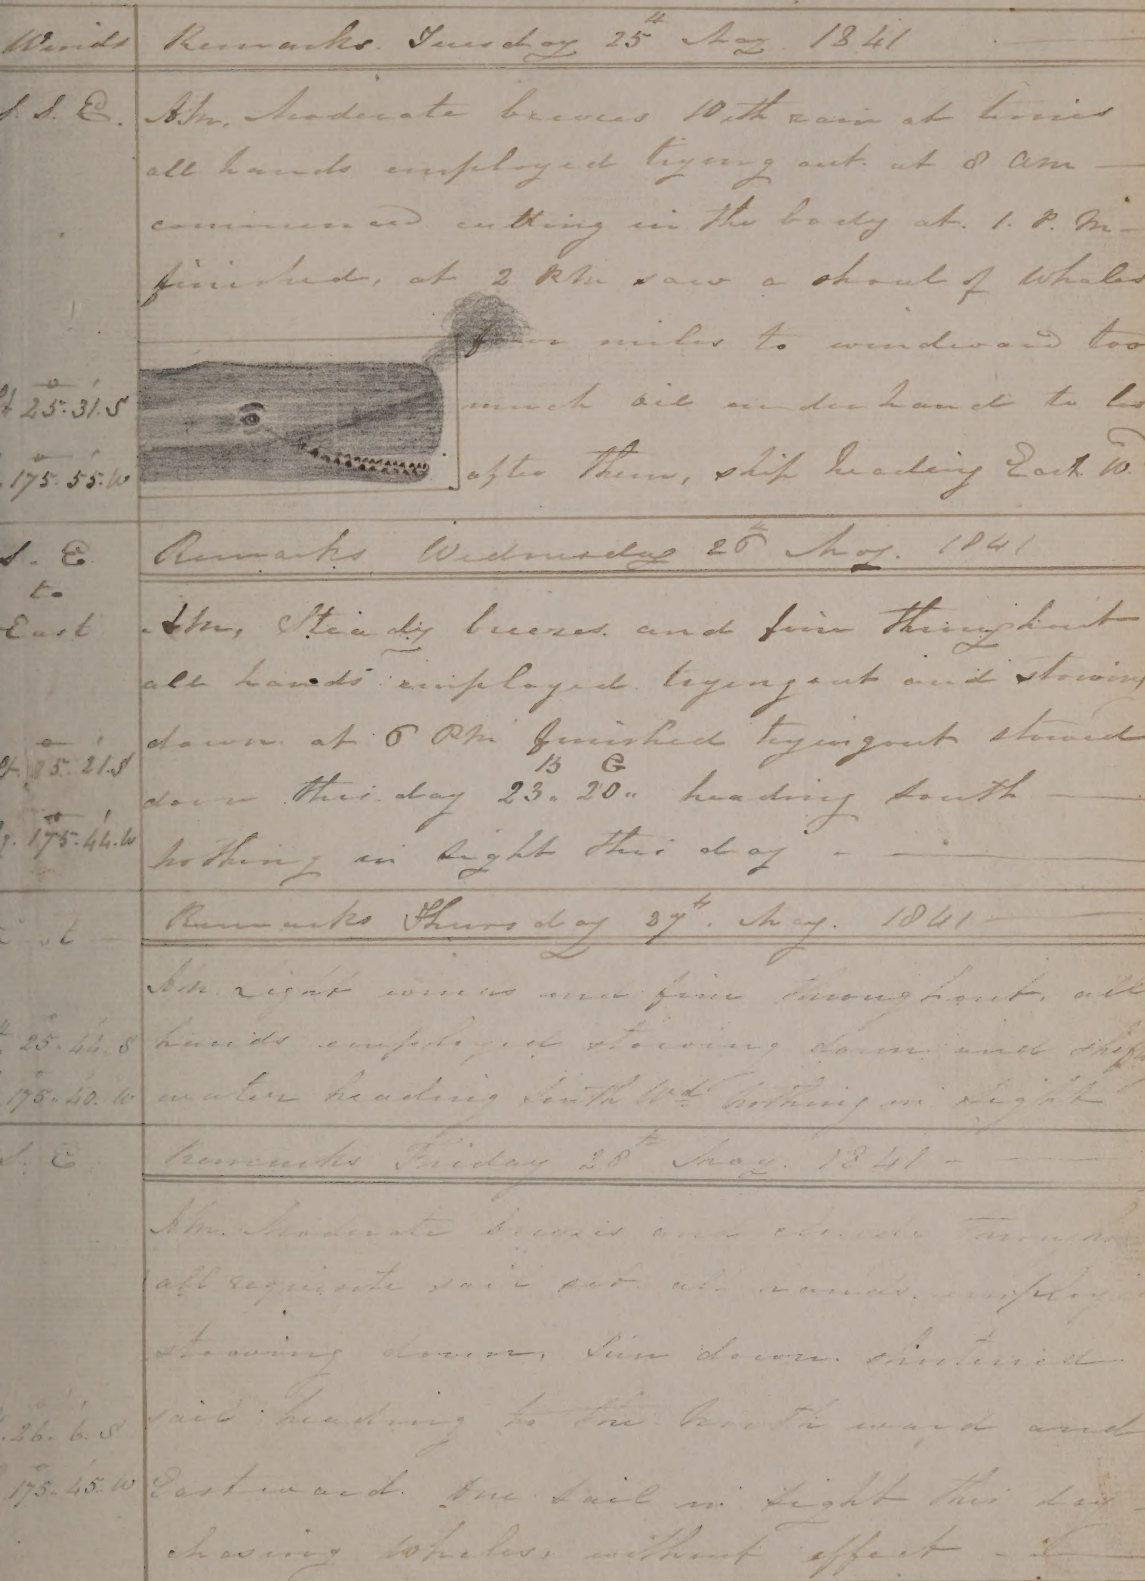 Winds Remarks Tuesday 25th May 1841
S. S. E. AM. Moderate breezes With rain at times
all hands employed trying out at 8 am
commenced cutting in the body at 1. P. M
finished, at 2 PM saw a shoal of Whales
four miles to windward too
25.31.S much oil under hand to lo
175.55.W after them, ship heading East W.
S. E Remarks Wednesday 26th May. 1841
to
East AM, Steady breezes and fine throughout
all hands employed tryingout and stowing
down at 6 PM finished tryingout stowed
B G
25.21.S down this day 23. 20.. heading South
175.44.W Nothing in sight this day
Remarks Thursday 27th. May. 1841
AM. Light winds and fine throughout. all
25.44.S hands employed stowing down and ship
175.40.W water heading South Wd Nothing in sight
S. E Remarks Friday 28th May. 1841
AM. Moderate breezes and cloudy
all requisite sail set. all hands. employ
stowing down. Sun down. shortened
26.6.S sail heading to the North ward and
175.45.W Eastward. One sail in sight this day
chasing Whales, without effect